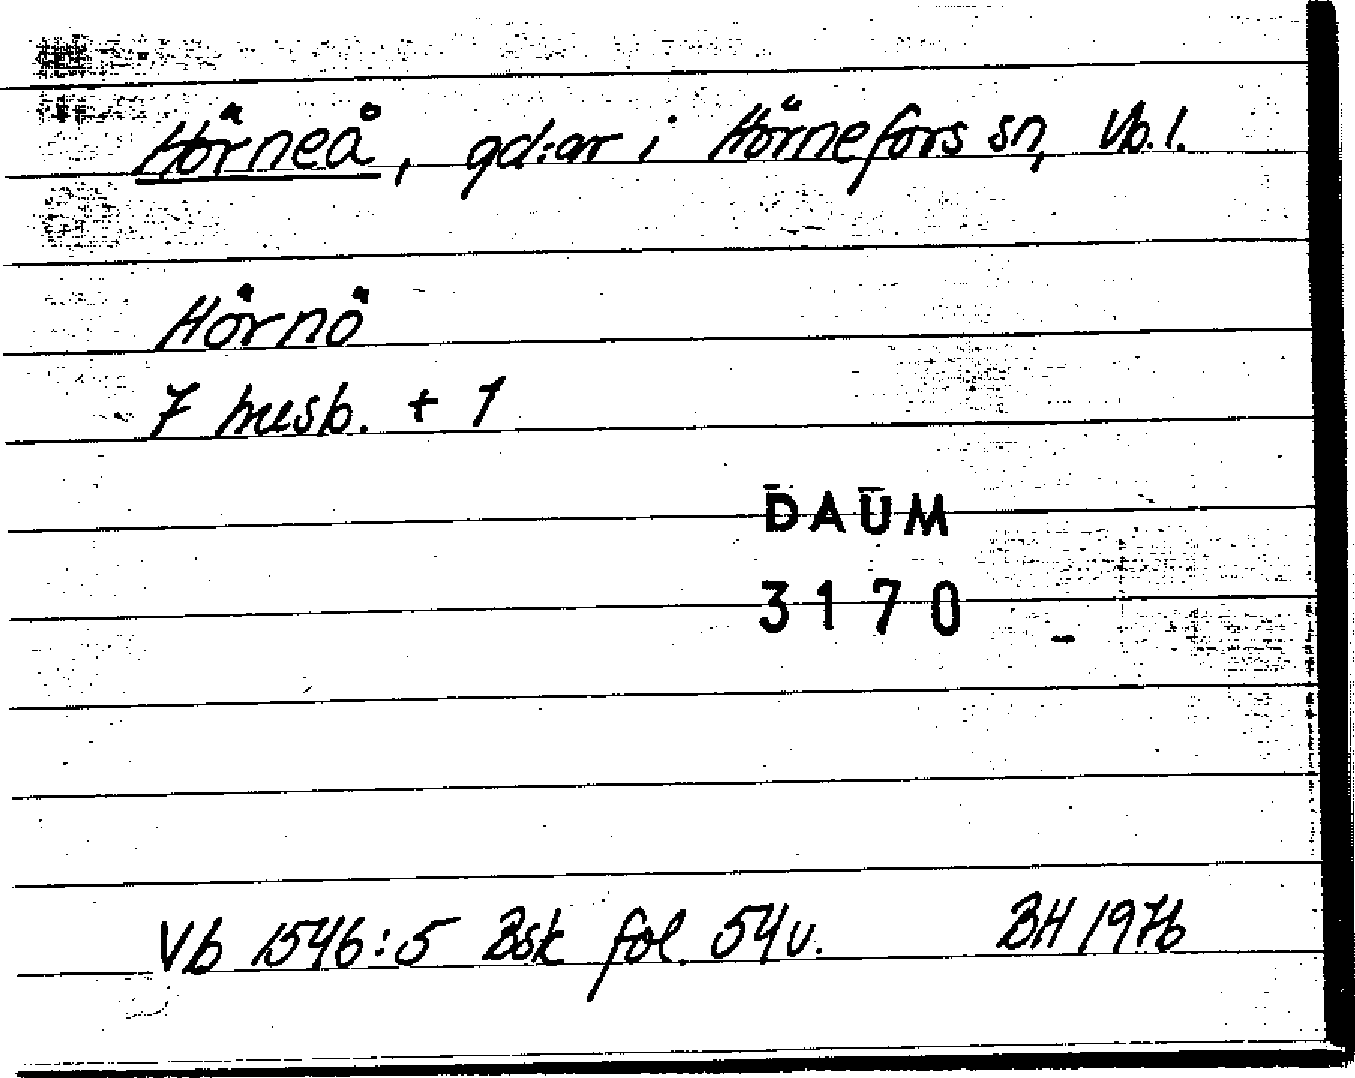 Hörneå, gd:ar i Hörnefors sn, Vb. l.
Hörnö
7 husb. + 1
DAUM
3170
Vb 1546:5 Bsk fol. 54v. BH 1976